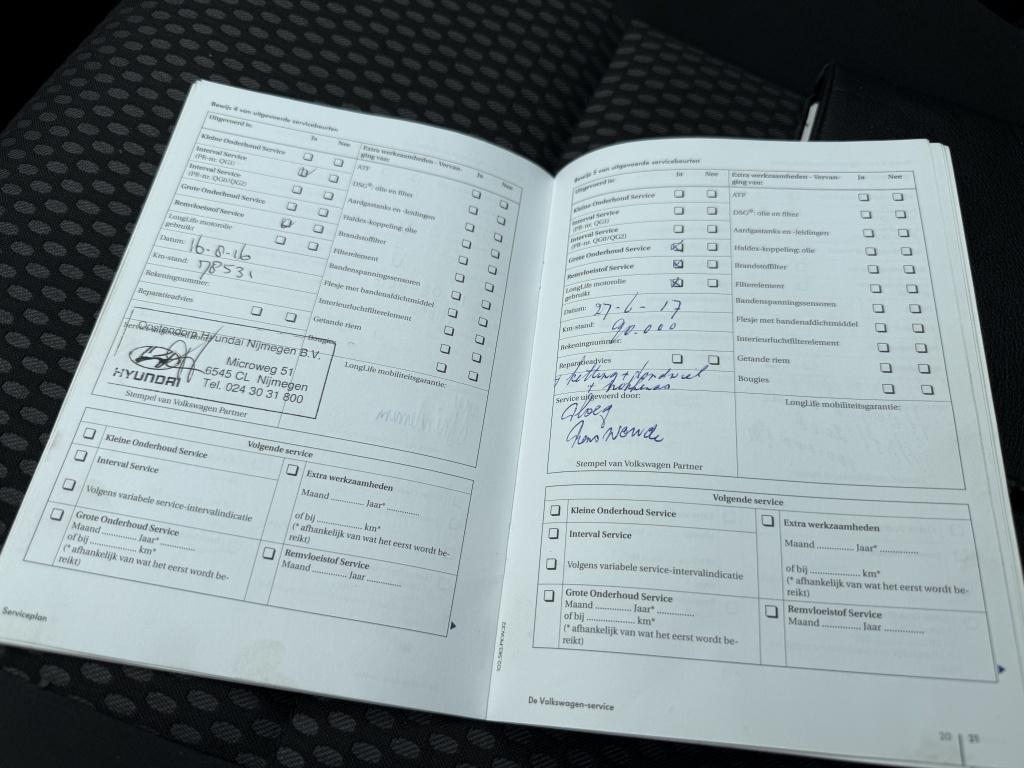 Bewijs 4 van uitgevoerde servicebeurten
Uitgevoerd is:
Ja
Nee
Kleine Onderhoud Service
Interval Service
(PR-nr. QG1)
Interval Service
(PR-nr. QG0/QG2)
Grote Onderhoud Service
Remvloeistof Service
LongLife motorolie
gebruikt
Datum: 16-8-16
Km-stand: 78531
Rekeningnummer:
Reparatieadvies
Extra werkzaamheden - Vervan-
ging van:
Ja
Nee
ATF
DSG®: olie en filter
Aardgastanks en -leidingen
Haldex-koppeling: olie
Brandstoffilter
Filterelement
Bandenspanningssensoren
Flesje met bandenafdichtmiddel
Interieurluchtfilterelement
Getande riem
Bougies
LongLife mobiliteitsgarantie:
Oostendorp Hyundai Nijmegen B.V.
Microweg 51
6545 CL Nijmegen
Tel. 024 30 31 800
HYUNDAI
Stempel van Volkswagen Partner
Volgende service
Kleine Onderhoud Service
Interval Service
Volgens variabele service-intervalindicatie
Grote Onderhoud Service
Maand ............ Jaar* ............
of bij ................... km*
(* afhankelijk van wat het eerst wordt be-
reikt)
Extra werkzaamheden
Maand ............ Jaar* ............
of bij ................... km*
(* afhankelijk van wat het eerst wordt be-
reikt)
Remvloeistof Service
Maand ............ Jaar ............
Serviceplan
102.5R3.PKW.32
Bewijs 5 van uitgevoerde servicebeurten
Uitgevoerd is:
Ja
Nee
Kleine Onderhoud Service
Interval Service
(PR-nr. QG1)
Interval Service
(PR-nr. QG0/QG2)
Grote Onderhoud Service
Remvloeistof Service
LongLife motorolie
gebruikt
Datum: 27-6-17
Km-stand: 90.000
Rekeningnummer:
Reparatieadvies
+ ketting + tandwiel
Service uitgevoerd door:
Ploeg
Stempel van Volkswagen Partner
Extra werkzaamheden - Vervan-
ging van:
Ja
Nee
ATF
DSG®: olie en filter
Aardgastanks en -leidingen
Haldex-koppeling: olie
Brandstoffilter
Filterelement
Bandenspanningssensoren
Flesje met bandenafdichtmiddel
Interieurluchtfilterelement
Getande riem
Bougies
LongLife mobiliteitsgarantie:
Volgende service
Kleine Onderhoud Service
Interval Service
Volgens variabele service-intervalindicatie
Grote Onderhoud Service
Maand ............ Jaar* ............
of bij ................... km*
(* afhankelijk van wat het eerst wordt be-
reikt)
Extra werkzaamheden
Maand ............ Jaar* ............
of bij ................... km*
(* afhankelijk van wat het eerst wordt be-
reikt)
Remvloeistof Service
Maand ............ Jaar ............
De Volkswagen-service
20 21